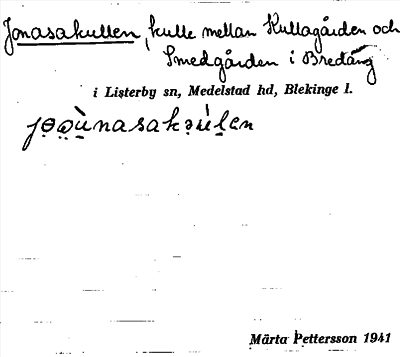 Jonasakullen, kulle mellan Kullagården och
Smedgården i Bredäng
i Listerby sn, Medelstad hd, Blekinge l.
Märta Pettersson 1941